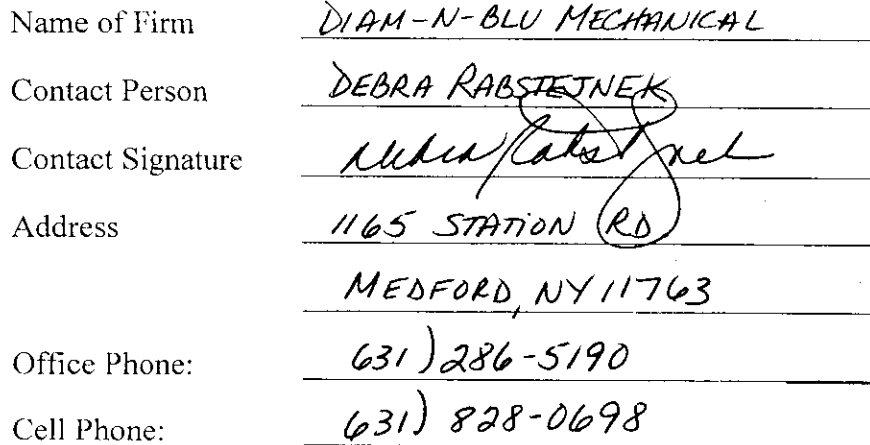 Name of Firm DIAM-N-BLU MECHANICAL
Contact Person DEBRA RABSTEJNEK
Contact Signature Debra Rabstejnek
Address 1165 STATION RD
MEDFORD, NY 11763
Office Phone: 631) 286-5190
Cell Phone: 631) 828-0698